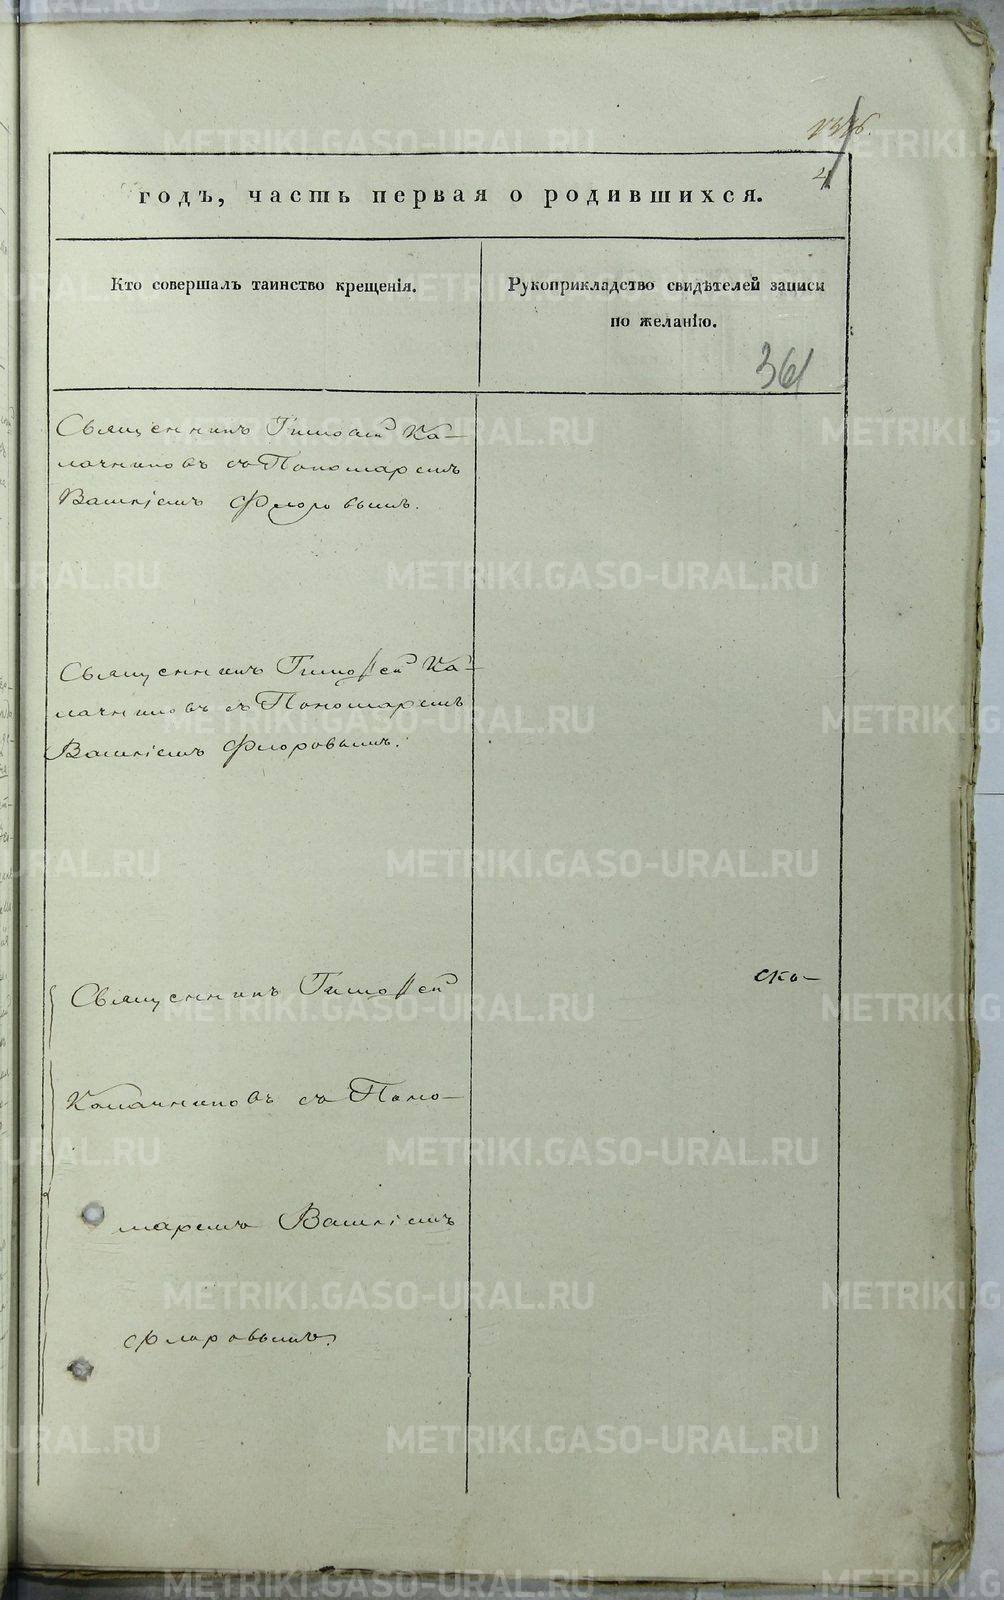 годъ, часть первая о родившихся.
Кто совершалъ таинство крещенія.
Рукоприкладство свидѣтелей записи
по желанію.
361
Священникъ Тимоѳей Ка-
лачниковъ съ Пономаремъ
Василіемъ Флоровымъ.
Священникъ Тимоѳей Ка-
лачниковъ съ Пономаремъ
Василіемъ Флоровымъ.
Священникъ Тимоѳей
ско-
Калачниковъ съ Поно-
маремъ Василіемъ
Флоровымъ.
METRIKI.GASO-URAL.RU